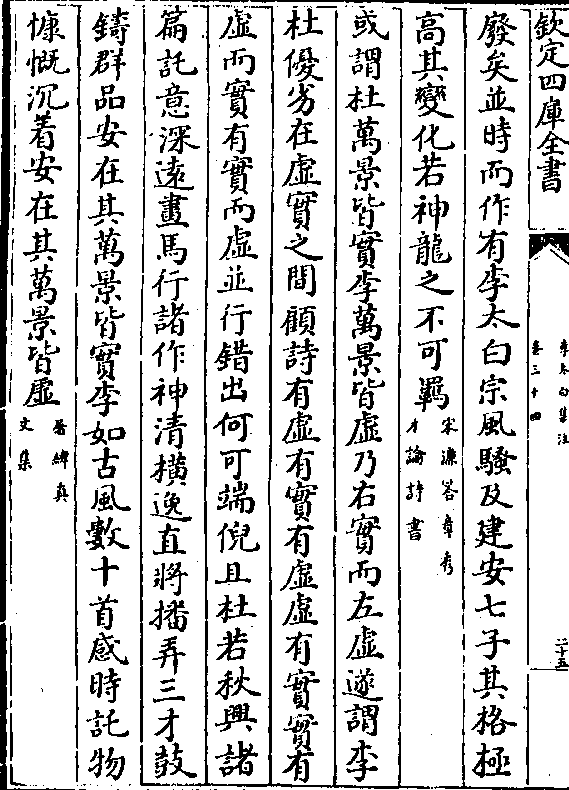 欽定四庫全書
李太白集注
卷三十四
二十五
廢矣並時而作有李太白宗風騷及建安七子其格極
高其變化若神龍之不可羈宋濂答章秀
才論詩書
或謂杜萬景皆實李萬景皆虛乃右實而左虛遂謂李
杜優劣在虛實之間顧詩有虛有實有虛虛有實實有
虛而實有實而虛並行錯出何可端倪且杜若秋興諸
篇託意深遠畫馬行諸作神清橫逸直將播弄三才鼓
鑄群品安在其萬景皆實李如古風數十首感時託物
慷慨沉着安在其萬景皆虛屠緯真
文集